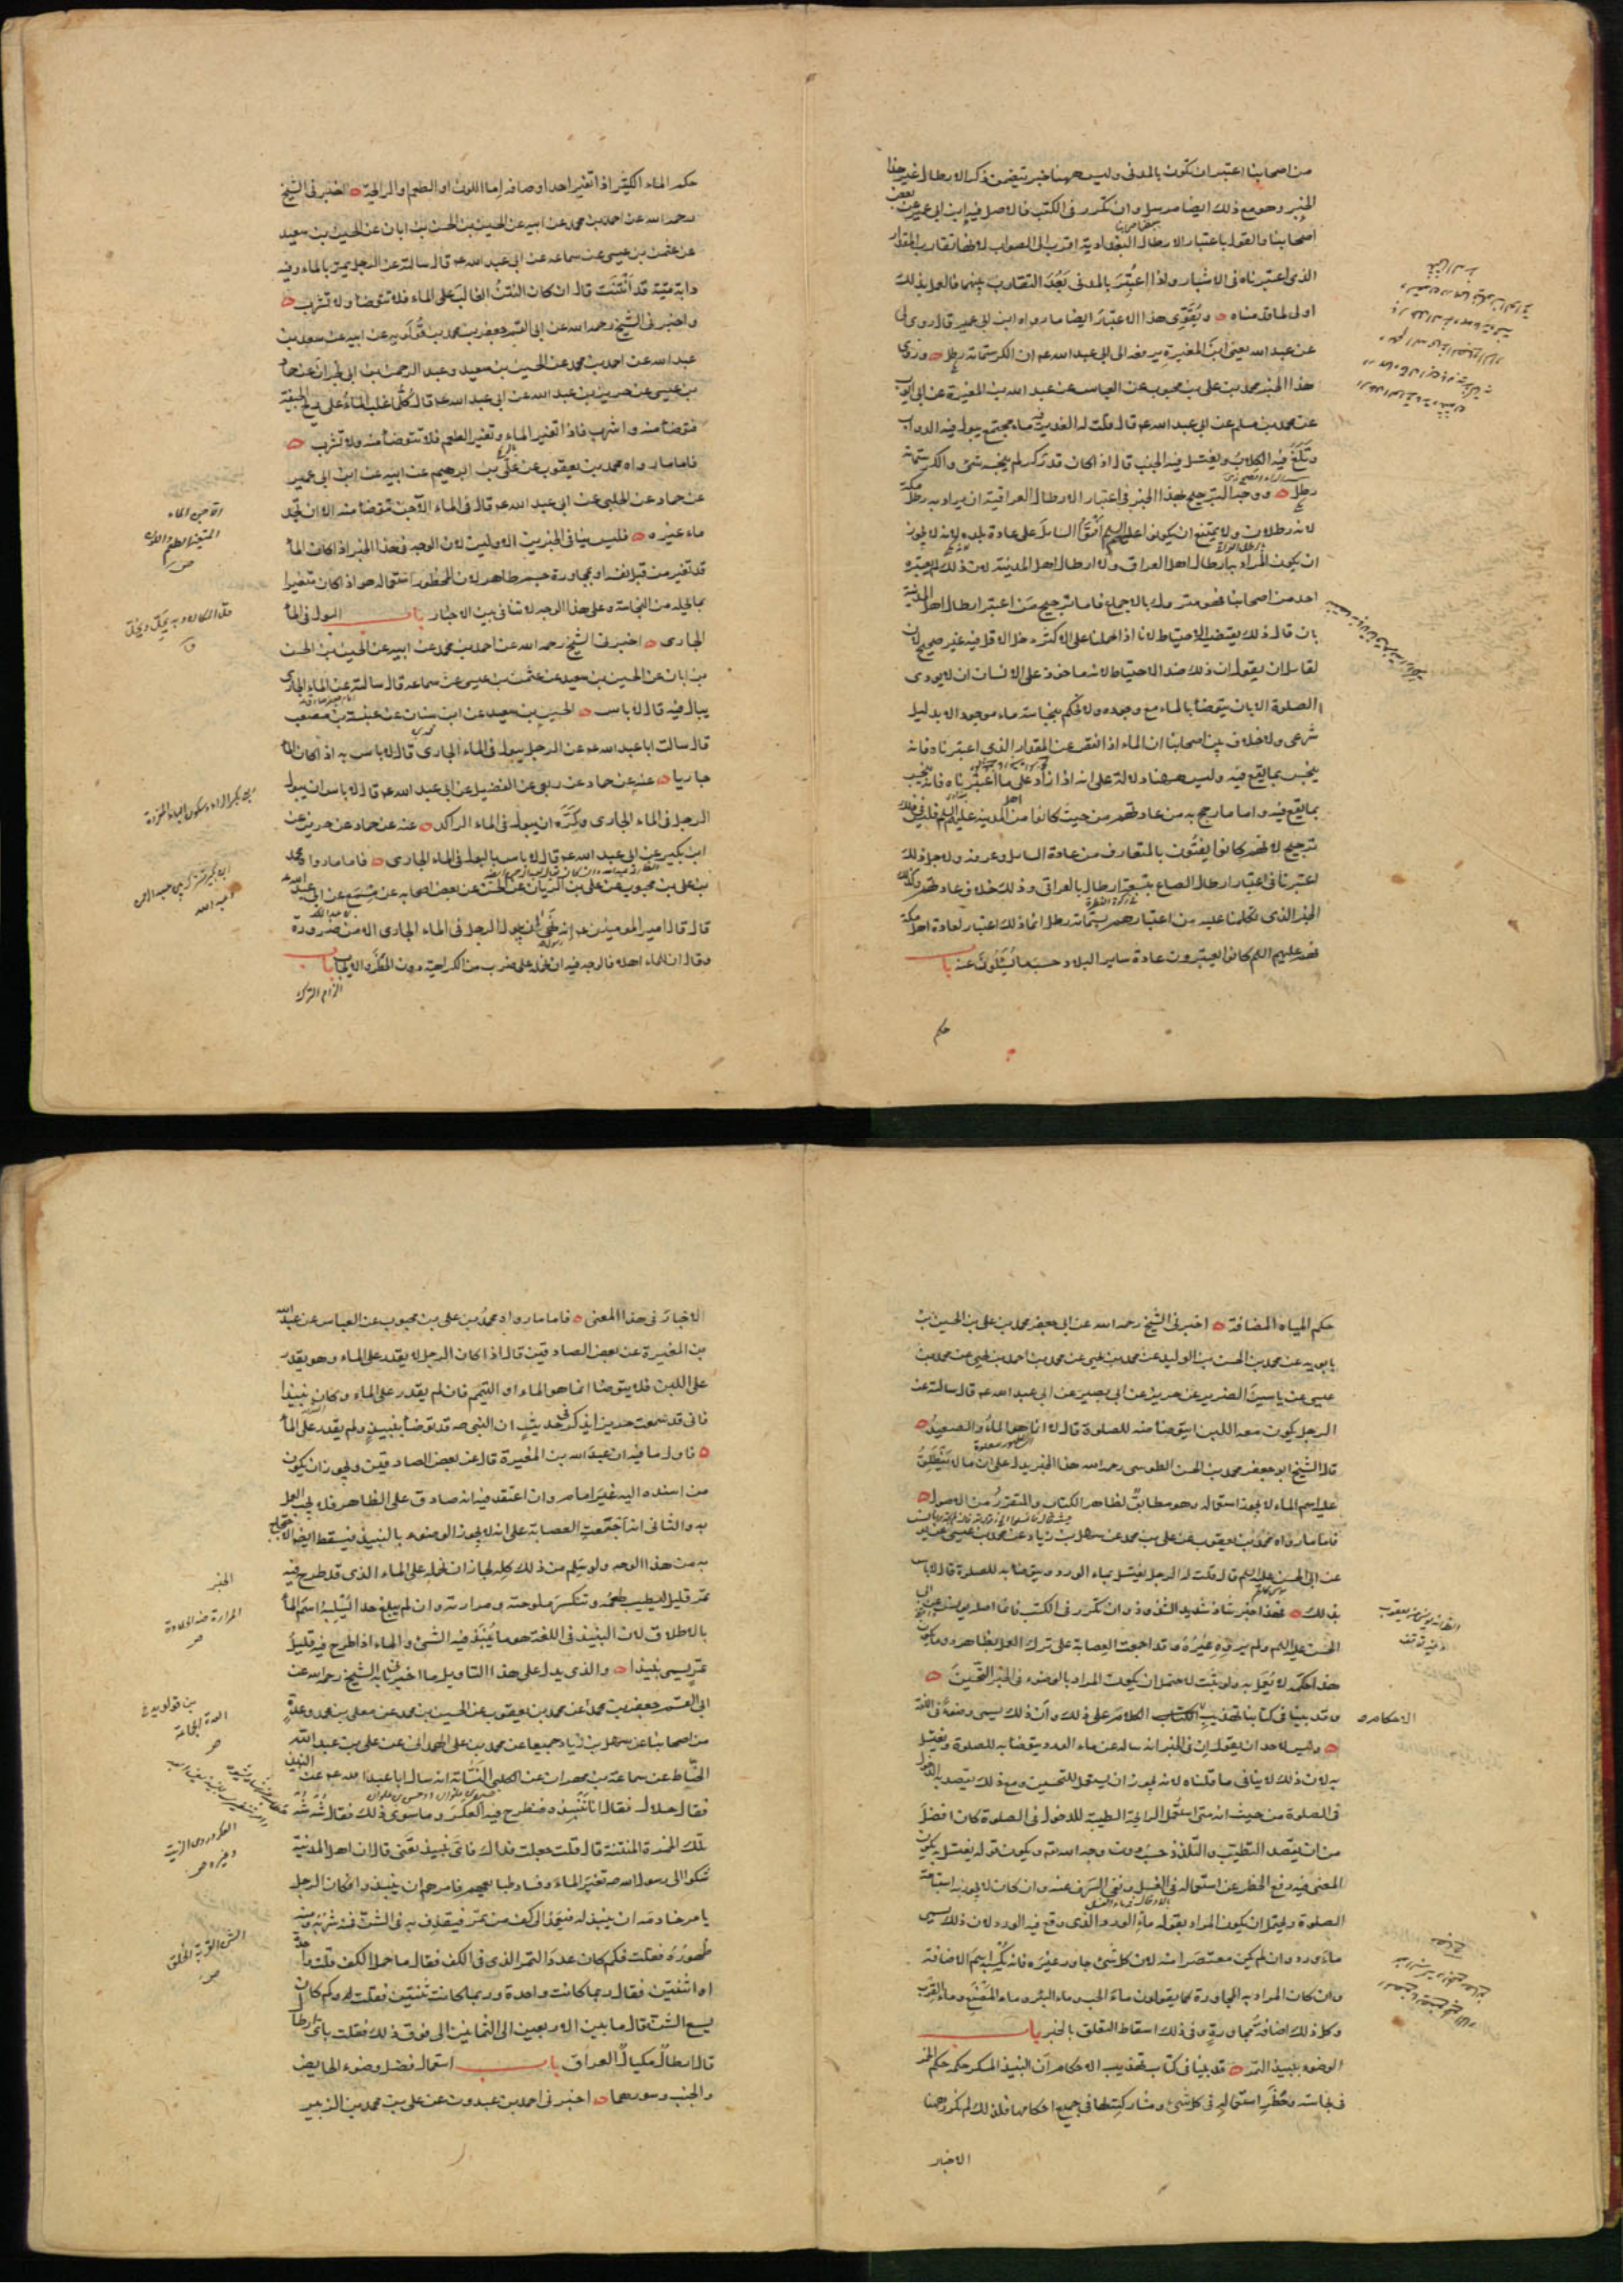 من اصحابنا اعتبر ان تكون بالمدنى وليس ههنا خبر يتضمن ذكر الارطال غير هذا
الخبر وهو مع ذلك ايضا مرسل وان تكرر فى الكتب فالاصل فيه ابن ابى عمير عن بعض
اصحابنا والقول باعتبار الارطال البغدادية اقرب الى الصواب لانها تقارب المقدار
الذى اعتبرناه فى الاشبار واذا اعتُبِرَ بالمدنى بَعُدَ التقارب بينهما فالعمل بذلك
اولى لما قدمناه ويُقَوِّى هذا الاعتبارَ ايضا ما رواه ابن ابى عمير قال روى لى
عن عبد الله يعنى ابنَ المغيرةِ يرفعه الى ابى عبد الله عم ان الكر ستمائة رطل وروى
هذا الخبر محمد بن على بن محبوب عن العباس عن عبد الله بن المغيرة عن ابى ايوب
عن محمد بن مسلم عن ابى عبد الله عم قال قلت له الغدير فيه ماء مجتمع يبول فيه الدواب
وتَلَغُ فيه الكلابُ ويغتسل فيه الجنب قال اذا كان قدر كر لم ينجسه شئ والكر ستمائة
رطل ووجه الترجيح بهذا الخبر فى اعتبار الارطال العراقية ان يراد به رطل مكة
لانه رطلان ولا يمتنع ان يكونوا عليهم السلم اَفْتَوُا السائلَ على عادة بلده لانه لا يجوز
ان يكون المراد به ارطال اهل العراق ولا ارطال اهل المدينة لان ذلك لم يعتبره
احد من اصحابنا فهو متروك بالاجماع فاما ترجيح مَن اعتبر ارطال اهل المدينة
بان قال ذلك يقتضيه الاحتياط لانا اذا حملنا على الاكثر دخل الاقل فيه غير صحيح لان
لقائل ان يقول ان ذلك ضد الاحتياط لانه ماخوذ على الانسان ان لا يودى
الصلوة الا بان يتوضأ بالماء مع وجوده ولا نحكم بنجاسة ماء موجود الا بدليل
شرعى ولا خلاف بين اصحابنا ان الماء اذا نقص عن المقدار الذى اعتبرناه فانه
ينجس بما يقع فيه وليس ههنا دلالة على انه اذا زاد على ما اعتبرناه فانه ينجس
بما يقع فيه واما ما رجح به من عادتهم من حيث كانوا من اهل المدينة عليهم السلم فليس فى ذلك
ترجيح لانهم كانوا يفتُون بالمتعارف من عادة السائل وعرفه ولاجل ذلك
اعتبرنا فى اعتبار ارطال الصاع بتسعة ارطال بالعراقى وذلك خلاف عادتهم وكذلك
الخبر الذى تكلمنا عليه من اعتبارهم بستمائة رطل انما ذلك اعتبار لعادة اهل مكة
فهم عليهم السلم كانوا يعتبرون عادة سائر البلاد حسبما يُسْئَلُونَ عنه باب
حكم
حكم الماء الكثير اذا تغير احد اوصافه اما اللون او الطعم او الرائحة اخبرنى الشيخ
رحمه الله عن احمد بن محمد عن ابيه عن الحسين بن الحسن بن ابان عن الحسين بن سعيد
عن عثمن بن عيسى عن سماعه عن ابى عبد الله عم قال سالته عن الرجل يمر بالماء وفيه
دابة ميتة قد اَنْتَنَتْ قال ان كان النتنُ الغالبَ على الماء فلا تتوضأ ولا تشرب
واخبرنى الشيخ رحمه الله عن ابى القسم جعفر بن محمد بن قُولَويه عن ابيه عن سعد بن
عبد الله عن احمد بن محمد عن الحسين بن سعيد وعبد الرحمن بن ابى نجران عن حماد
بن عيسى عن حريز بن عبد الله عن ابى عبد الله عم قال كُلَّما غلب الماءُ على ريح الجيفة
فتوضأ منه واشرب فاذا تغير الماء وتغير الطعم فلا تتوضأ منه ولا تشرب
فاما ما رواه محمد بن يعقوب عن على بن ابرهيم عن ابيه عن ابن ابى عمير
عن حماد عن الحلبى عن ابى عبد الله عم قال فى الماء الآجن تتوضأ منه الا ان تجد
ماء غيره فليس ينافى الخبرين الاولين لان الوجه فى هذا الخبر اذا كان الماء
قد تغير من قبل نفسه او بمجاورة جسم طاهر لان المحظور استعماله هو اذا كان متغيرا
بما يحله من النجاسة وعلى هذا الوجه لا تنافى بين الاخبار باب البول فى الماء
الجارى اخبرنى الشيخ رحمه الله عن احمد بن محمد عن ابيه عن الحسين بن الحسن
بن ابان عن الحسين بن سعيد عن عثمن بن عيسى عن سماعه قال سالته عن الماء الجارى
يبال فيه قال لا باس الحسين بن سعيد عن ابن سنان عن عنبسة بن مصعب
قال سالت ابا عبد الله عم عن الرجل يبول فى الماء الجارى قال لا باس به اذا كان الماء
جاريا عنه عن حماد عن ربعى عن الفضيل عن ابى عبد الله عم قال لا باس ان يبول
الرجل فى الماء الجارى وكُرِهَ ان يبول فى الماء الراكد عنه عن حماد عن حريز عن
ابن بكير عن ابى عبد الله عم قال لا باس بالبول فى الماء الجارى فاما ما رواه محمد
بن على بن محبوب عن على بن الريان عن الحسن عن بعض اصحابه عن مِسْمَع عن ابى عبد الله عم
قال قال امير المومنين عم انه نهى ان يبول الرجل فى الماء الجارى الا من ضرورة
وقال ان للماء اهلا فالوجه فيه ان نحمله على ضرب من الكراهية دون الحظر والايجاب باب
الاجن الماء
المتغير الطعم واللون
حكم المياه المضافة اخبرنى الشيخ رحمه الله عن ابى جعفر محمد بن على بن الحسين بن
بابويه عن محمد بن الحسن بن الوليد عن محمد بن يحيى عن محمد بن احمد بن يحيى عن محمد بن
عيسى عن ياسين الضرير عن حريز عن ابى بصير عن ابى عبد الله عم قال سالته عن
الرجل يكون معه اللبن ايتوضأ منه للصلوة قال لا انما هو الماءُ والصعيدُ
قال الشيخ ابو جعفر محمد بن الحسن الطوسى رحمه الله هذا الخبر يدل على ان ما لا يَنْطَلِقُ
عليه اسم الماء لا يجوز استعماله وهو مطابقٌ لظاهر الكتاب والمتقررُ من الاصول
فاما ما رواه محمد بن يعقوب عن على بن محمد عن سهل بن زياد عن محمد بن عيسى عن يونس
عن ابى الحسن عليه السلم قال قلت له الرجل يغتسل بماء الورد ويتوضأ به للصلوة قال لا باس
بذلك فهذا خبر شاذ شديد الشذوذ وان تكرر فى الكتب فانما اصله يونس عن ابى
الحسن عليه السلم ولم يروه غيرُه وقد اجمعت العصابة على ترك العمل بظاهره وما يكون
هذا حكمه لا يُعمل به ولو ثبت لاحتمل ان يكون المراد بالوضوء فى الخبر التحسين
وقد بينا فى كتابنا تهذيب الكتاب الكلام على ذلك وان ذلك يسمى وضوءًا فى اللغة
وليس لاحد ان يقول ان فى الخبر انه ساله عن ماء الورد يتوضأ به للصلوة ويغتسل
به لان ذلك لا ينافى ما قلناه لانه يجوز ان يستعمل للتحسين ومع ذلك يقصد به الدخول
فى الصلوة من حيث انه متى استعمل الرائحة الطيبة للدخول فى الصلوة كان افضلَ
من ان يقصد التطيب والتلذذ حسب دون وجه الله تعه ويكون قوله يغتسل به يكون
المعنى فيه رفع الحظر عن استعماله فى الغسل ونفى السَرَف عنه وان كان لا يجوز به استباحة
الصلوة ويحتمل ان يكون المراد بقوله ماء الورد الذى وقع فيه الورد لان ذلك يسمى
ماء ورد وان لم يكن معتصرا منه لان كل شئ جاور غيره فانه يكسبه اسمَ الاضافة
وان كان المراد به المجاورة كما يقولون ماء الحب وماء البئر وماء المصنع وماء القِرَب
وكل ذلك اضافة مجاورةٍ وفى ذلك اسقاط التعلق بالخبر باب
الوضوء بنبيذ التمر قد بينا فى كتاب تهذيب الاحكام ان النبيذ المسكر حكمه حكم الخمر
فى نجاسته وحَظْرِ استعمالِه فى كل شئ ومشاركته لها فى جميع احكامها فلذلك لم نكرر ههنا
الاخبار
الاحكام
الاخبارَ فى هذا المعنى فاما ما رواه محمدُ بن على بن محبوب عن العباس عن عبد الله
بن المغيرة عن بعض الصادقين قال اذا كان الرجل لا يقدر على الماء وهو يقدر
على اللبن فلا يتوضأ انما هو الماء او التيمم فان لم يقدر على الماء وكان نبيذا
فانى قد سمعت حريزا يذكر فى حديثٍ ان النبى صه قد توضأ بنبيذٍ ولم يقدر على الماء
فاول ما فيه ان عبدَ الله بن المغيرة قال عن بعض الصادقين ويجوز ان يكون
من اسنده اليه غيرَ امام وان اعتقد فيه انه صادق على الظاهر فلا يجب العمل
به والثانى انه اجتمعت العصابة على انه لا يجوز الوضوء بالنبيذ فيسقط ايضا الاحتجاج
به من هذا الوجه ولو سَلِم من ذلك كلِه لجاز ان نحمله على الماء الذى قد طرح فيه
تمر قليل ليطيب طعمُه وتنكسر ملوحته ومرارته وان لم يبلغ حدا يَسْلِبُه اسمَ الماء
بالاطلاق لان النبيذ فى اللغة هو ما يُنبَذ فيه الشئ والماء اذا طرح فيه قليلُ
تمر يسمى نبيذا والذى يدل على هذا التاويل ما اخبرنى به الشيخ رحمه الله عن
ابى القسم جعفر بن محمد عن محمد بن يعقوب عن الحسين بن محمد عن معلى بن محمد وعدةٍ
من اصحابنا عن سهل بن زياد جميعا عن محمد بن على الهمدانى عن على بن عبد الله
الحنّاط عن سماعة بن مهران عن الكلبى النسّابة انه سال ابا عبد الله عم عن النبيذ
فقال حلال فقال انا نَنْبِذُه فنطرح فيه العكَر وما سوى ذلك فقال شُه شُه
تلك الخمرة المنتنة قال قلت جعلت فداك فاىَّ نبيذ تَعْنى قال ان اهل المدينة
شكوا الى رسول الله صه تغيرَ الماء وفساد طبايعهم فامرهم ان ينبذوا فكان الرجل
يامر خادمَه ان ينبذ له فيعمِد الى كف من تمر فيقذف به فى الشنّ فمنه شربُه ومنه
طَهورُه فقلت فكم كان عدد التمر الذى فى الكف فقال ما حمل الكف قلت واحدة
او اثنتين فقال ربما كانت واحدة وربما كانت ثنتين فقلت له وكم كان
يسع الشنّ قال ما بين الاربعين الى الثمانين الى فوق ذلك فقلت باى رطال
قال ارطال مكيال العراق باب استعمال فضل وضوء الحايض
والجنب وسورهما اخبرنى احمد بن عبدون عن على بن محمد بن الزبير
الخبر
المرارة ضد الحلاوة
بن قولويه
العدة الجماعة
العكر دردى الزيت
وغيره
الشن القربة الخلق